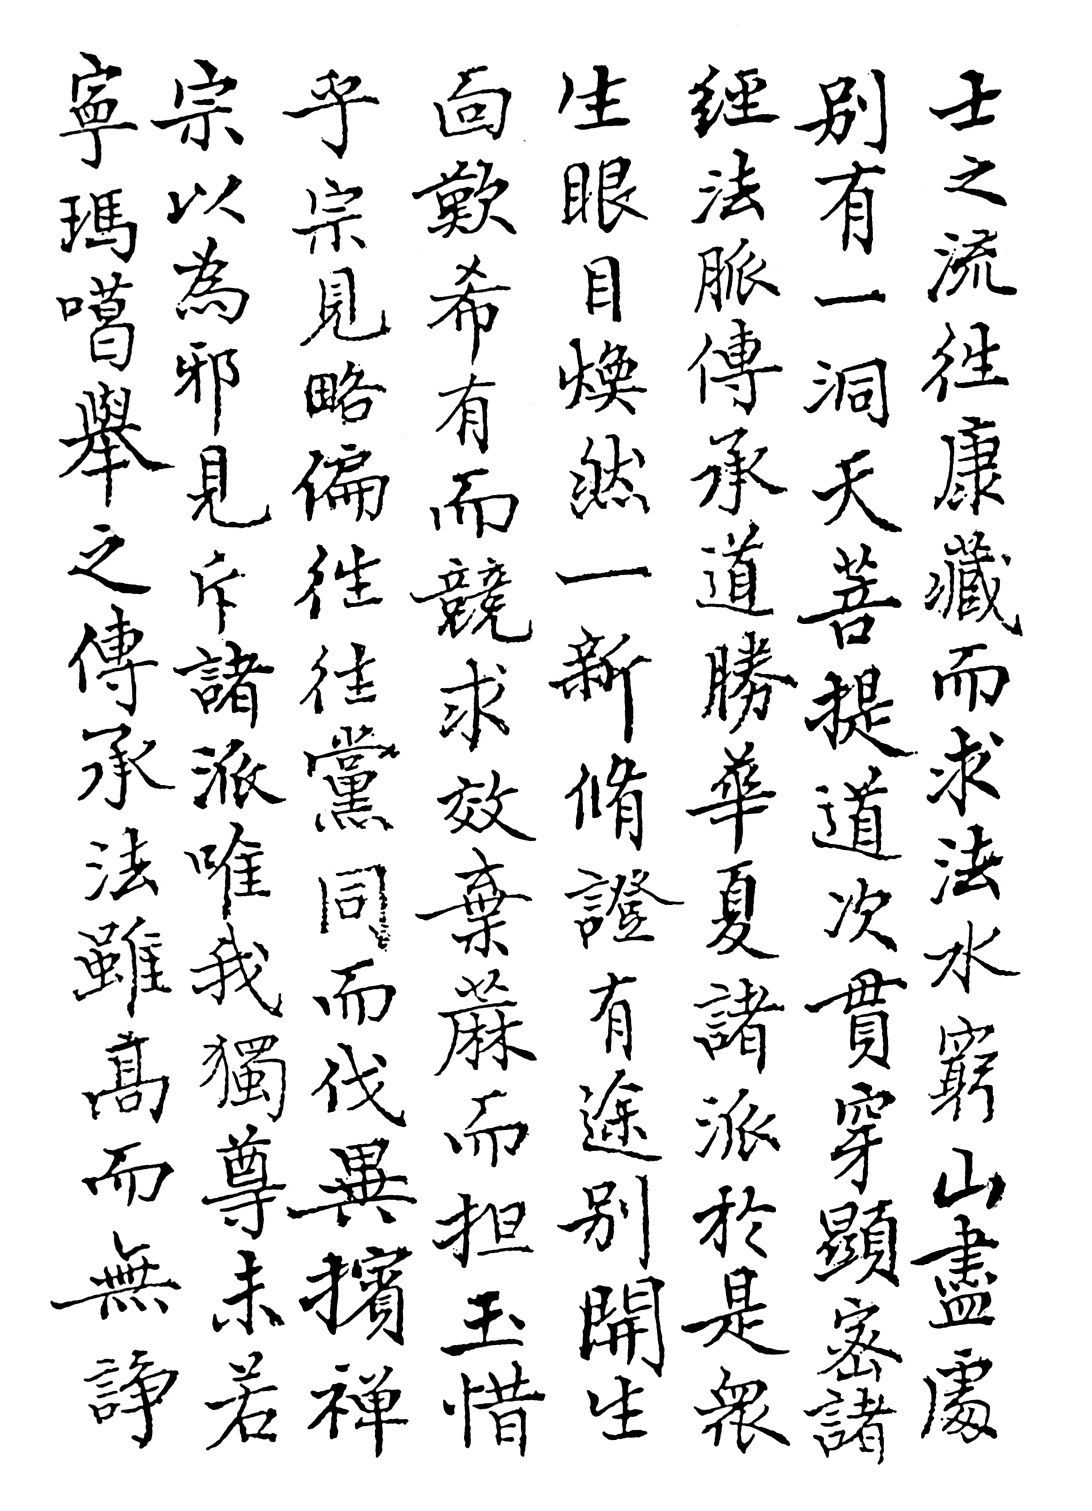 士之流往康藏而求法水窮山盡處
別有一洞天菩提道次貫穿顯密諸
經法脈傳承道勝華夏諸派於是眾
生眼目煥然一新脩證有途別開生
面歎希有而競求效棄蔴而担玉惜
乎宗見略偏往往黨同而伐異擯禪
宗以為邪見斥諸派唯我獨尊未若
寧瑪噶舉之傳承法雖高而無諍